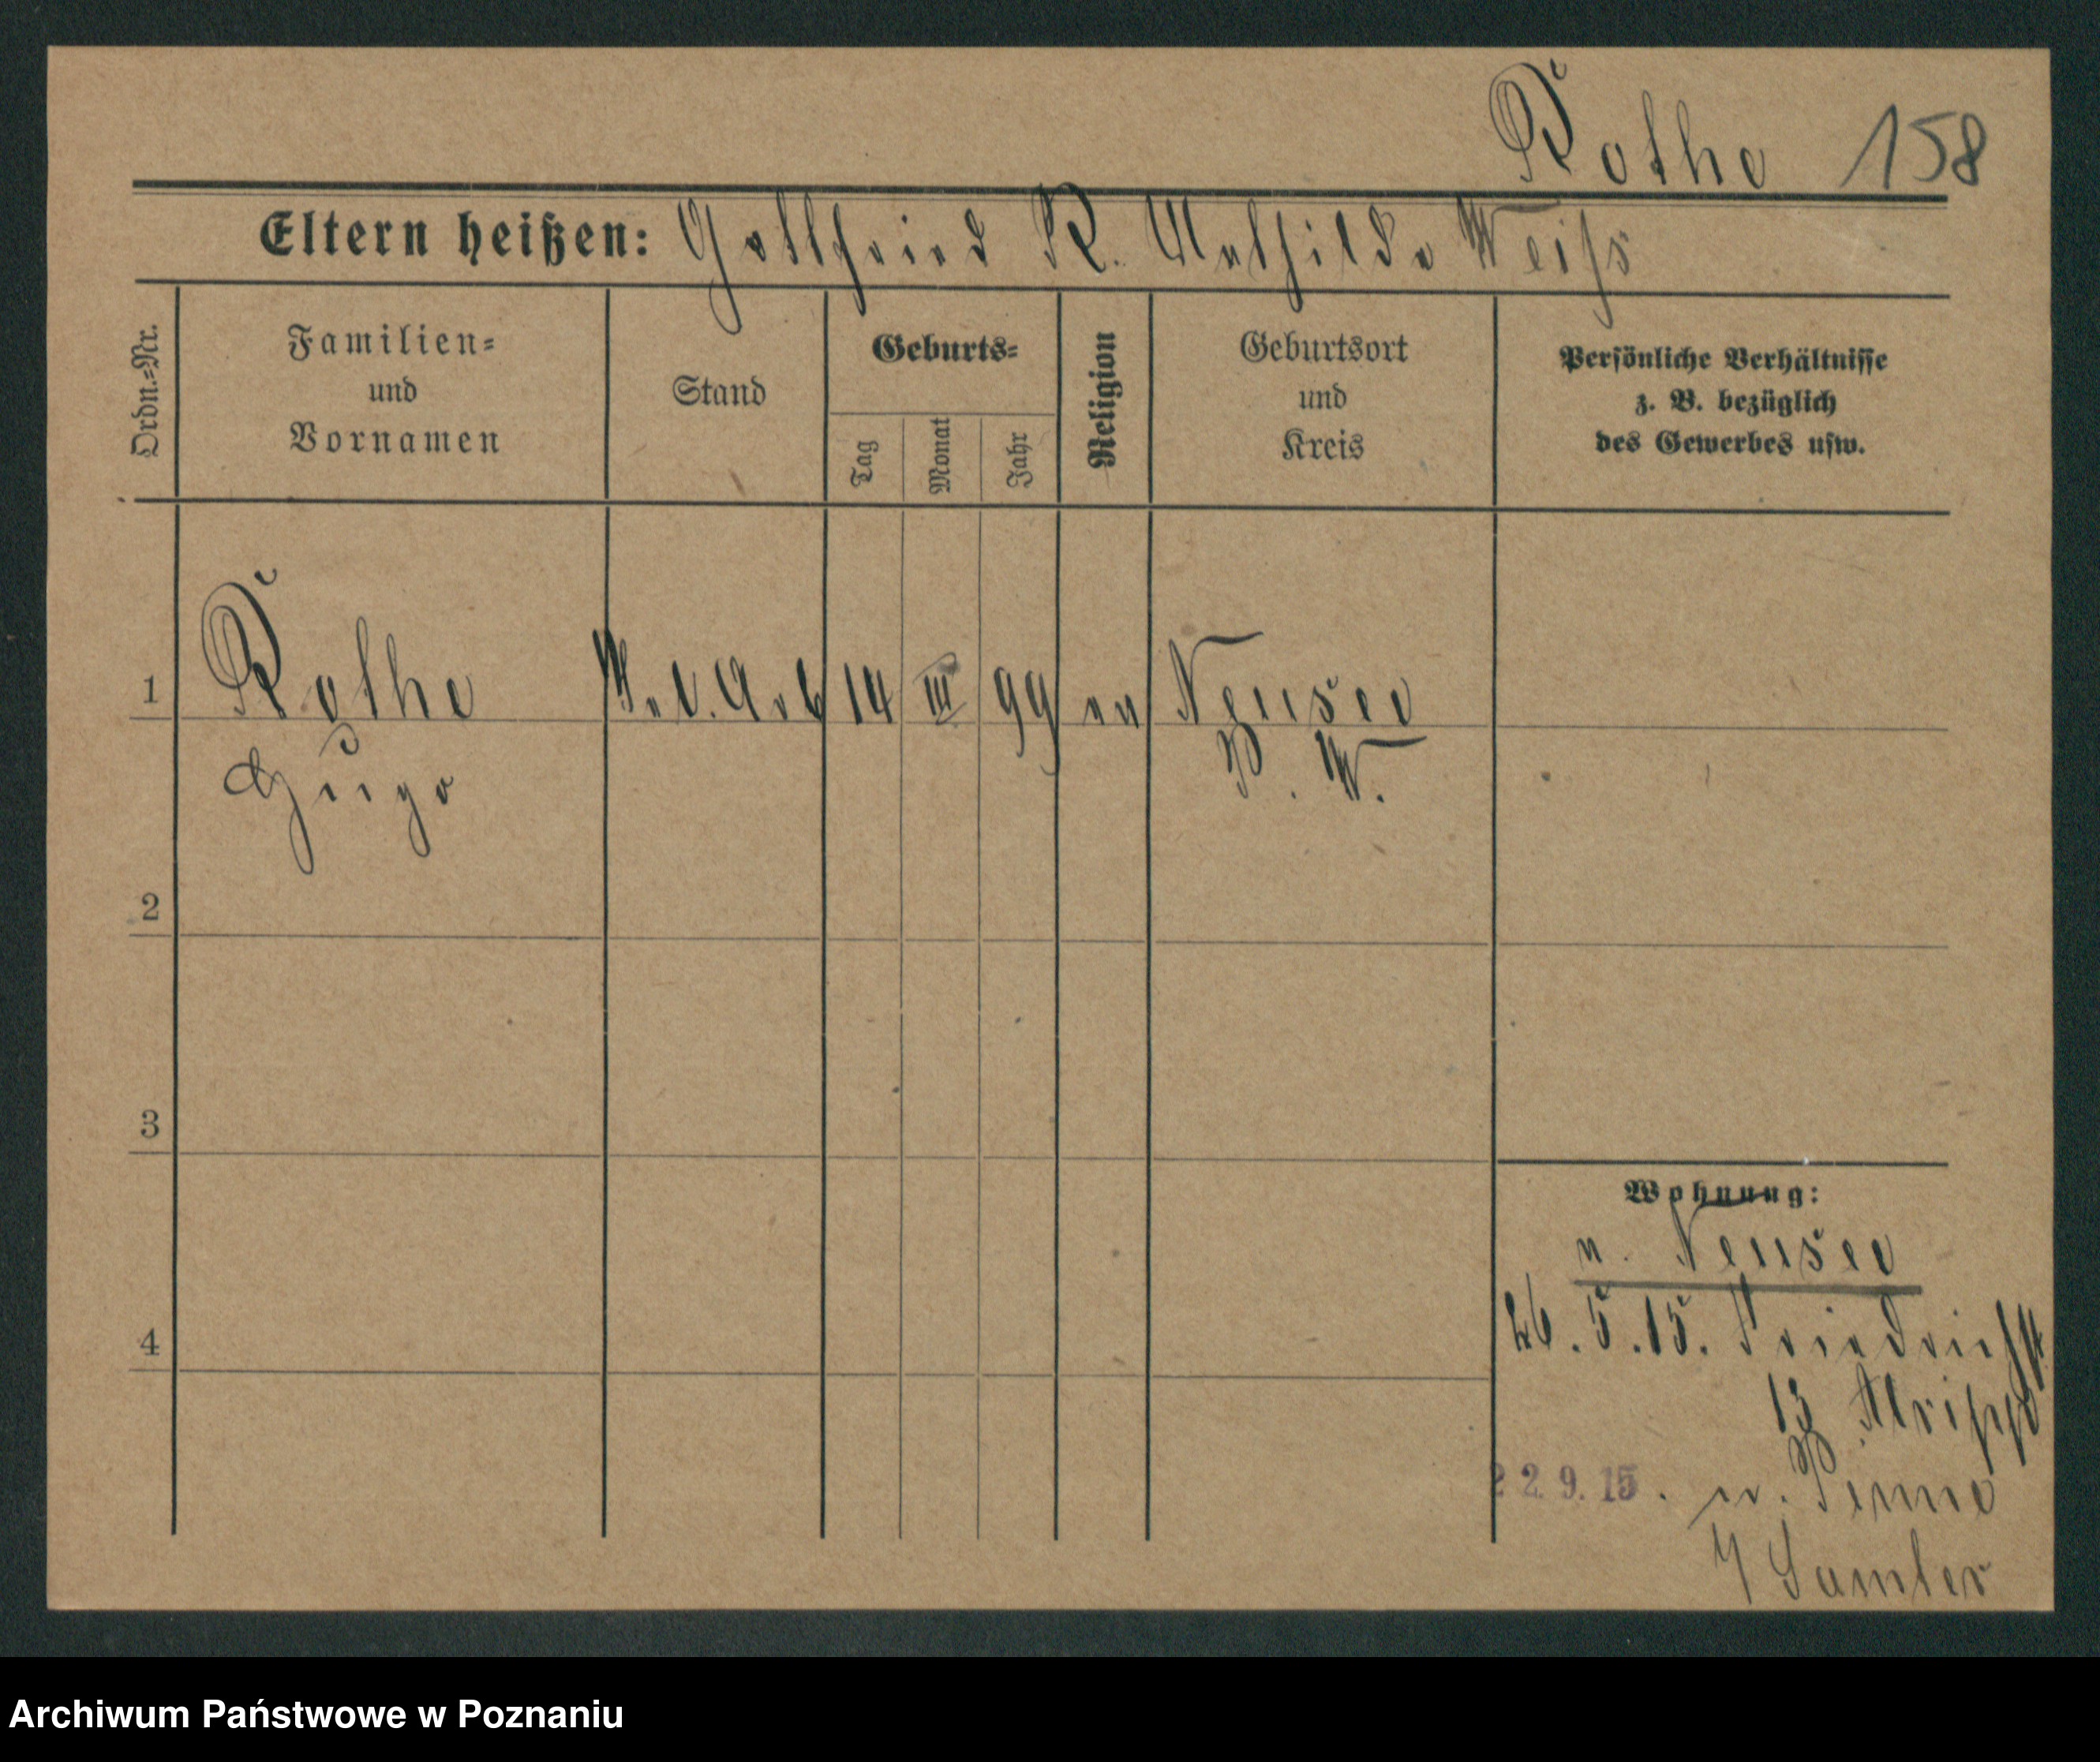 Rothe 158
Eltern heißen: Gottfried R. Mathilde Weiß
Ordn.=Nr.
Familien=
und
Vornamen
Stand
Geburts=
Tag
Monat
Jahr
Religion
Geburtsort
und
Kreis
Persönliche Verhältnisse
z. B. bezüglich
des Gewerbes usw.
1 Rothe Arb 14 III 99 ev Neusee
Hugo P. W.
2
3
4
Wohnung:
n. Neusee
26.5.15. Friedrichst.
13
22.9.15. n. Pinne
Archiwum Państwowe w Poznaniu